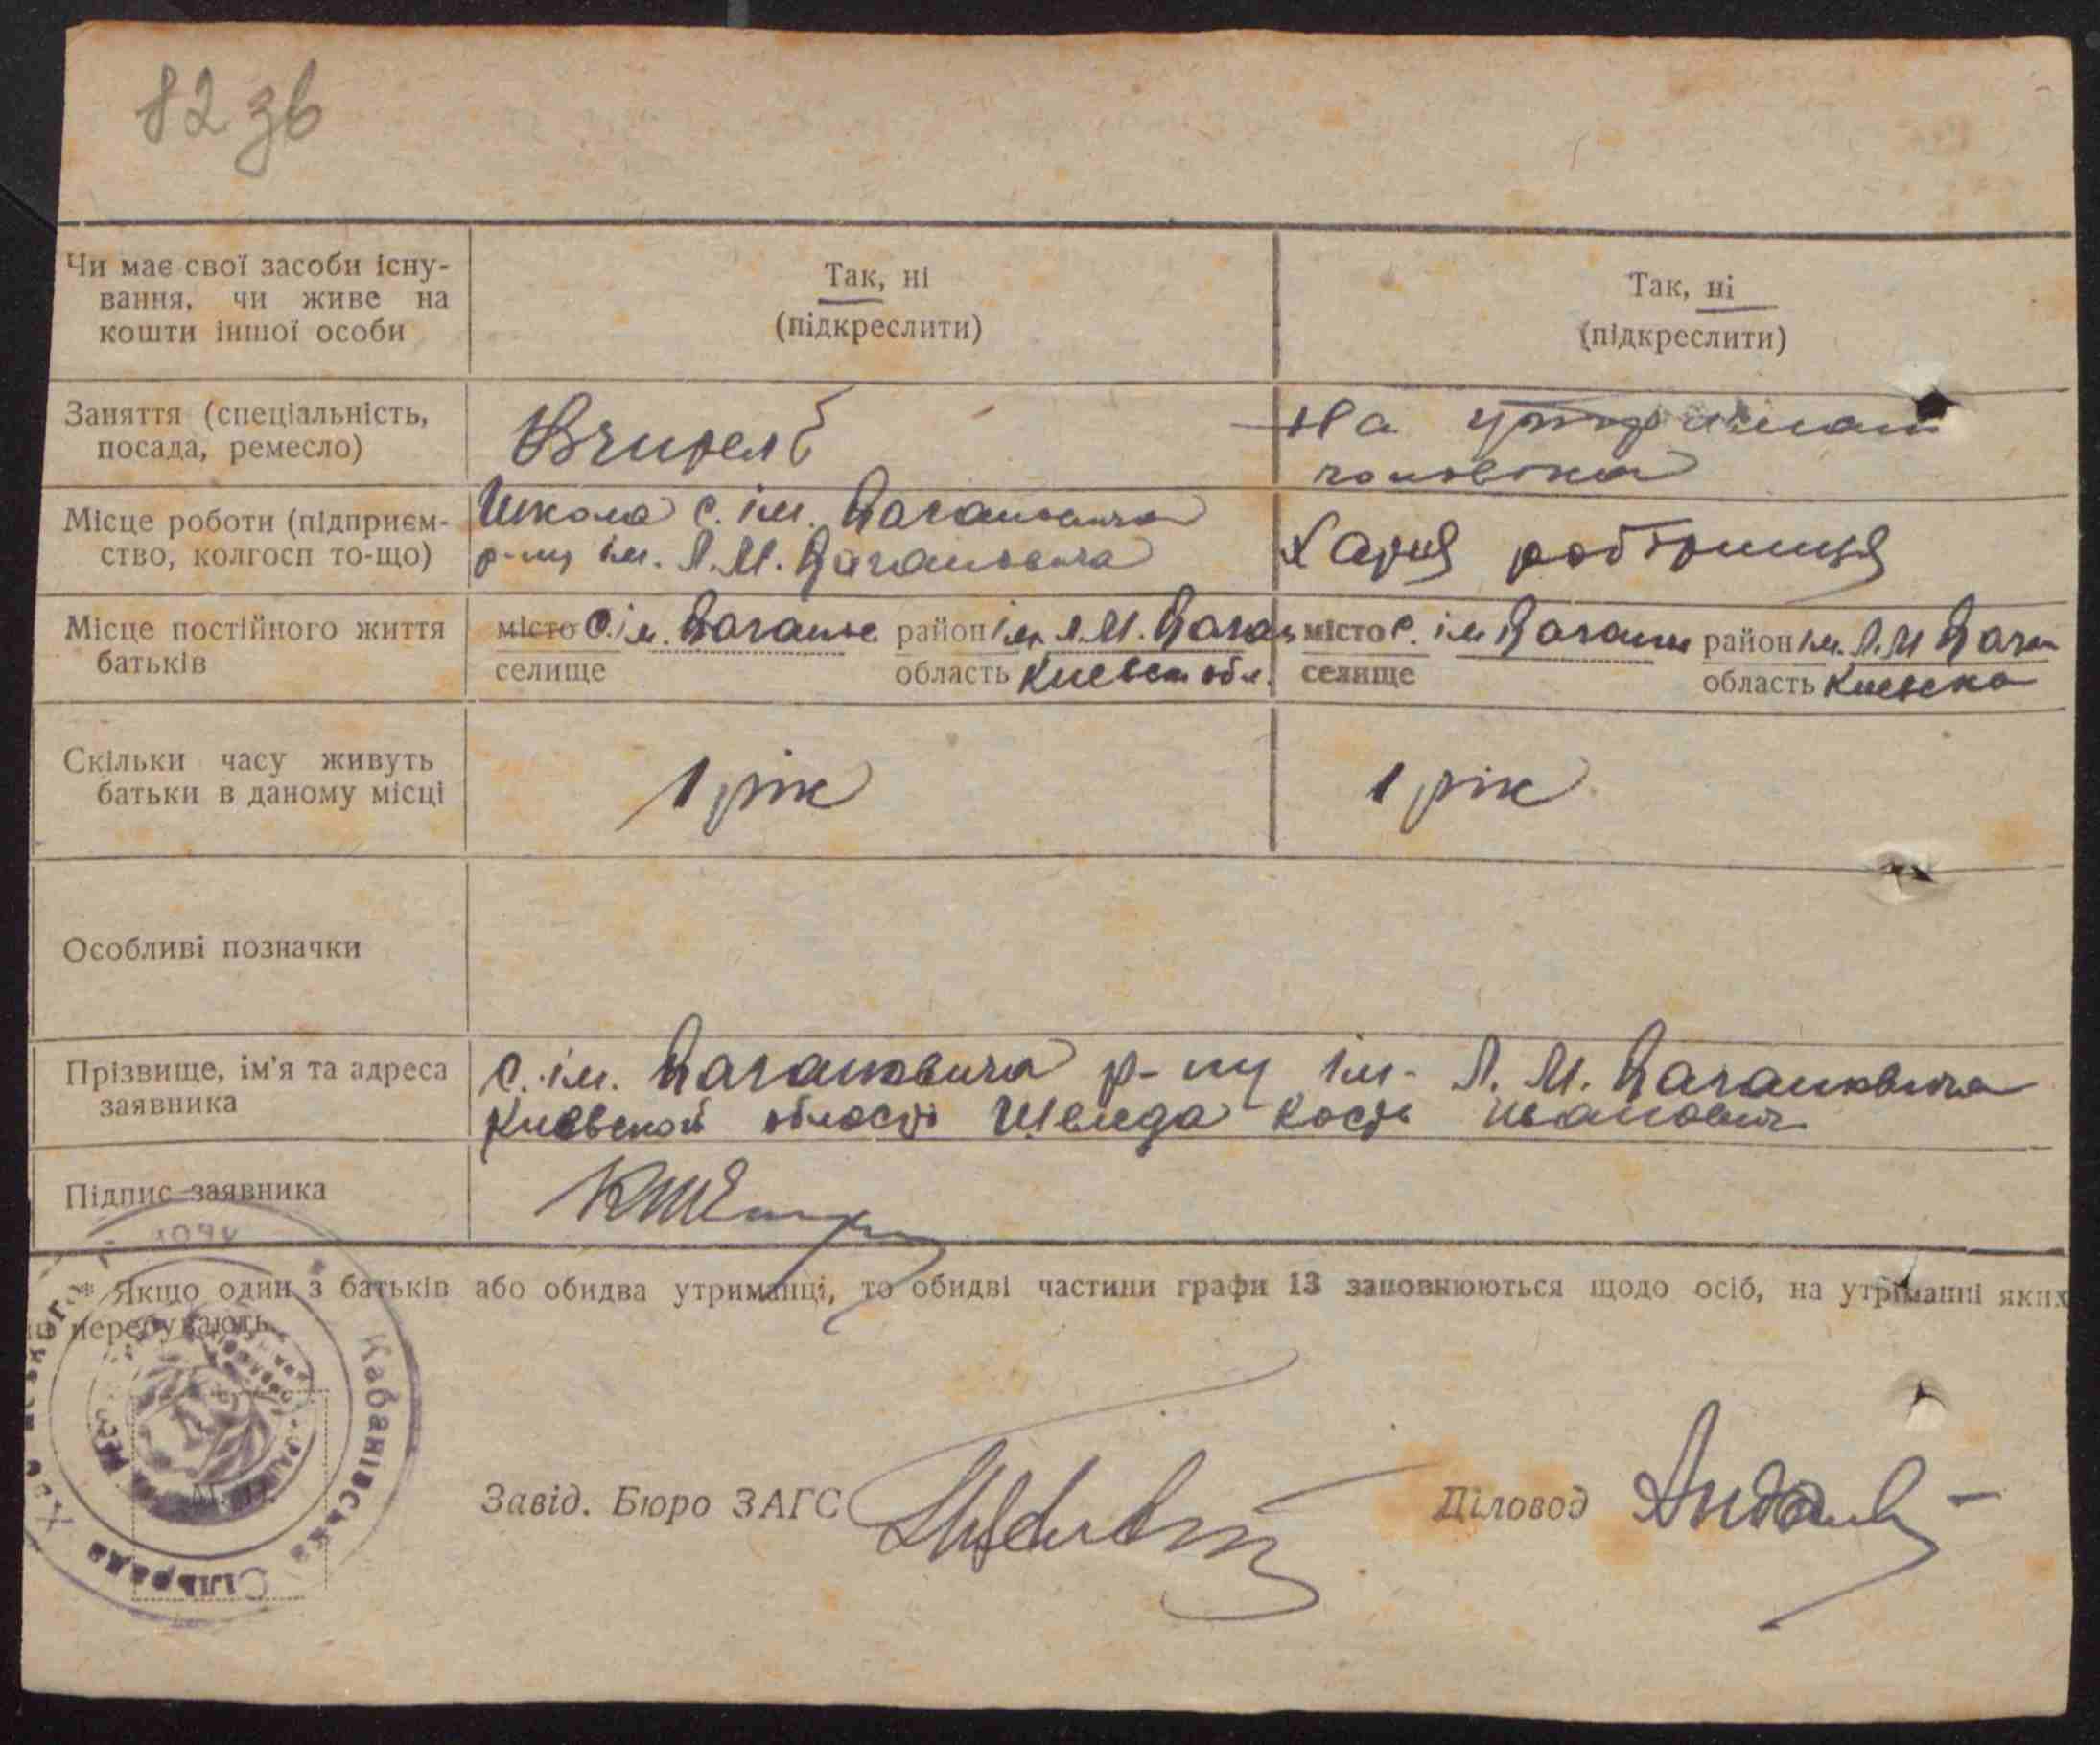 82 зв
Чи має свої засоби існу-
вання, чи живе на
кошти іншої особи
Так, ні
(підкреслити)
Так, ні
(підкреслити)
Заняття (спеціальність,
посада, ремесло)
Вчитель
На
чоловіка
Місце роботи (підприєм-
ство, колгосп то-що)
Школа с. ім. Кагановича
р-ну ім. Л.М. Кагановича
Харчя робітниця
Місце постійного життя
батьків
місто с. ім. Каганов. район ім. Л.М. Каган
селище область Киевск обл.
місто с. ім Каганов район ім. Л.М Каган
селище область Киевска
Скільки часу живуть
батьки в даному місці
1 рік
1 рік
Особливі позначки
Прізвище, ім'я та адреса
заявника
с. ім. Кагановича р-ну ім. Л. М. Кагановича
Киевской області Швида Кость Иванович
Підпис заявника
* Якщо один з батьків або обидва утриманці, то обидві частини графи 13 заповнюються щодо осіб, на утриманні яких
перебувають
Кабанівська Сільрада
Завід. Бюро ЗАГС
Діловод